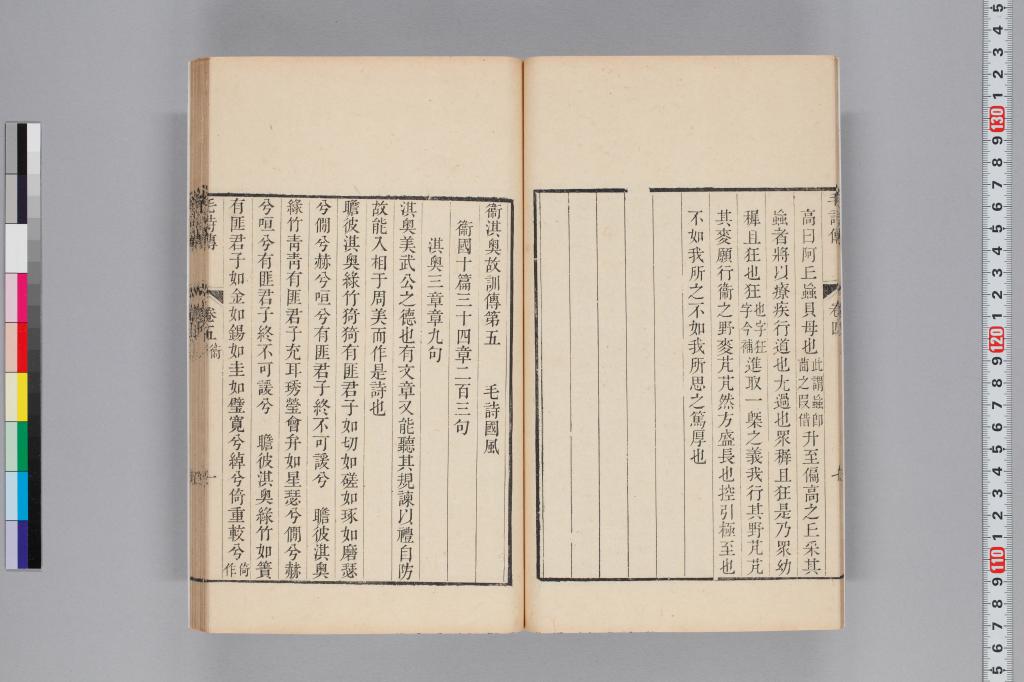 毛詩傳 卷四
高曰阿丘蝱貝母也此謂蝱即莔之叚借升至偏高之丘采其
蝱者將以療疾行道也尤過也眾穉且狂是乃眾幼
穉且狂也狂也字狂字今補進取一槩之義我行其野芃芃
其麥願行衞之野麥芃芃然方盛長也控引極至也
不如我所之不如我所思之篤厚也
衞淇奧故訓傳第五 毛詩國風
衞國十篇三十四章二百三句
淇奧三章章九句
淇奧美武公之德也有文章又能聽其規諫以禮自防
故能入相于周美而作是詩也
瞻彼淇奧綠竹猗猗有匪君子如切如磋如琢如磨瑟
兮僩兮赫兮咺兮有匪君子終不可諼兮 瞻彼淇奧
綠竹青青有匪君子充耳琇瑩會弁如星瑟兮僩兮赫
兮咺兮有匪君子終不可諼兮 瞻彼淇奧綠竹如簀
有匪君子如金如錫如圭如璧寬兮綽兮倚重較兮倚作
毛詩傳 卷五 衞 一
130
120
110